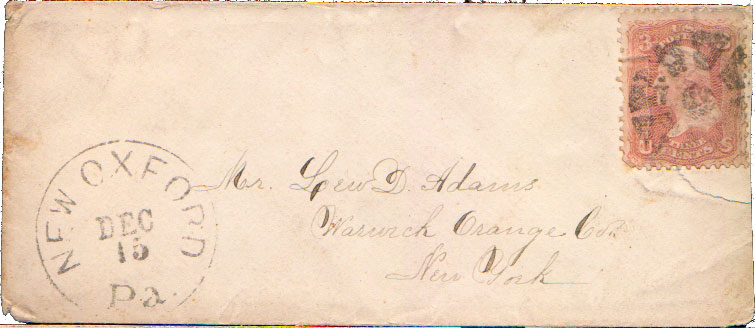 NEW OXFORD
DEC
15
Pa.
Mr. Lew D. Adams
Warwick Orange Co.
New York
3 3
U S